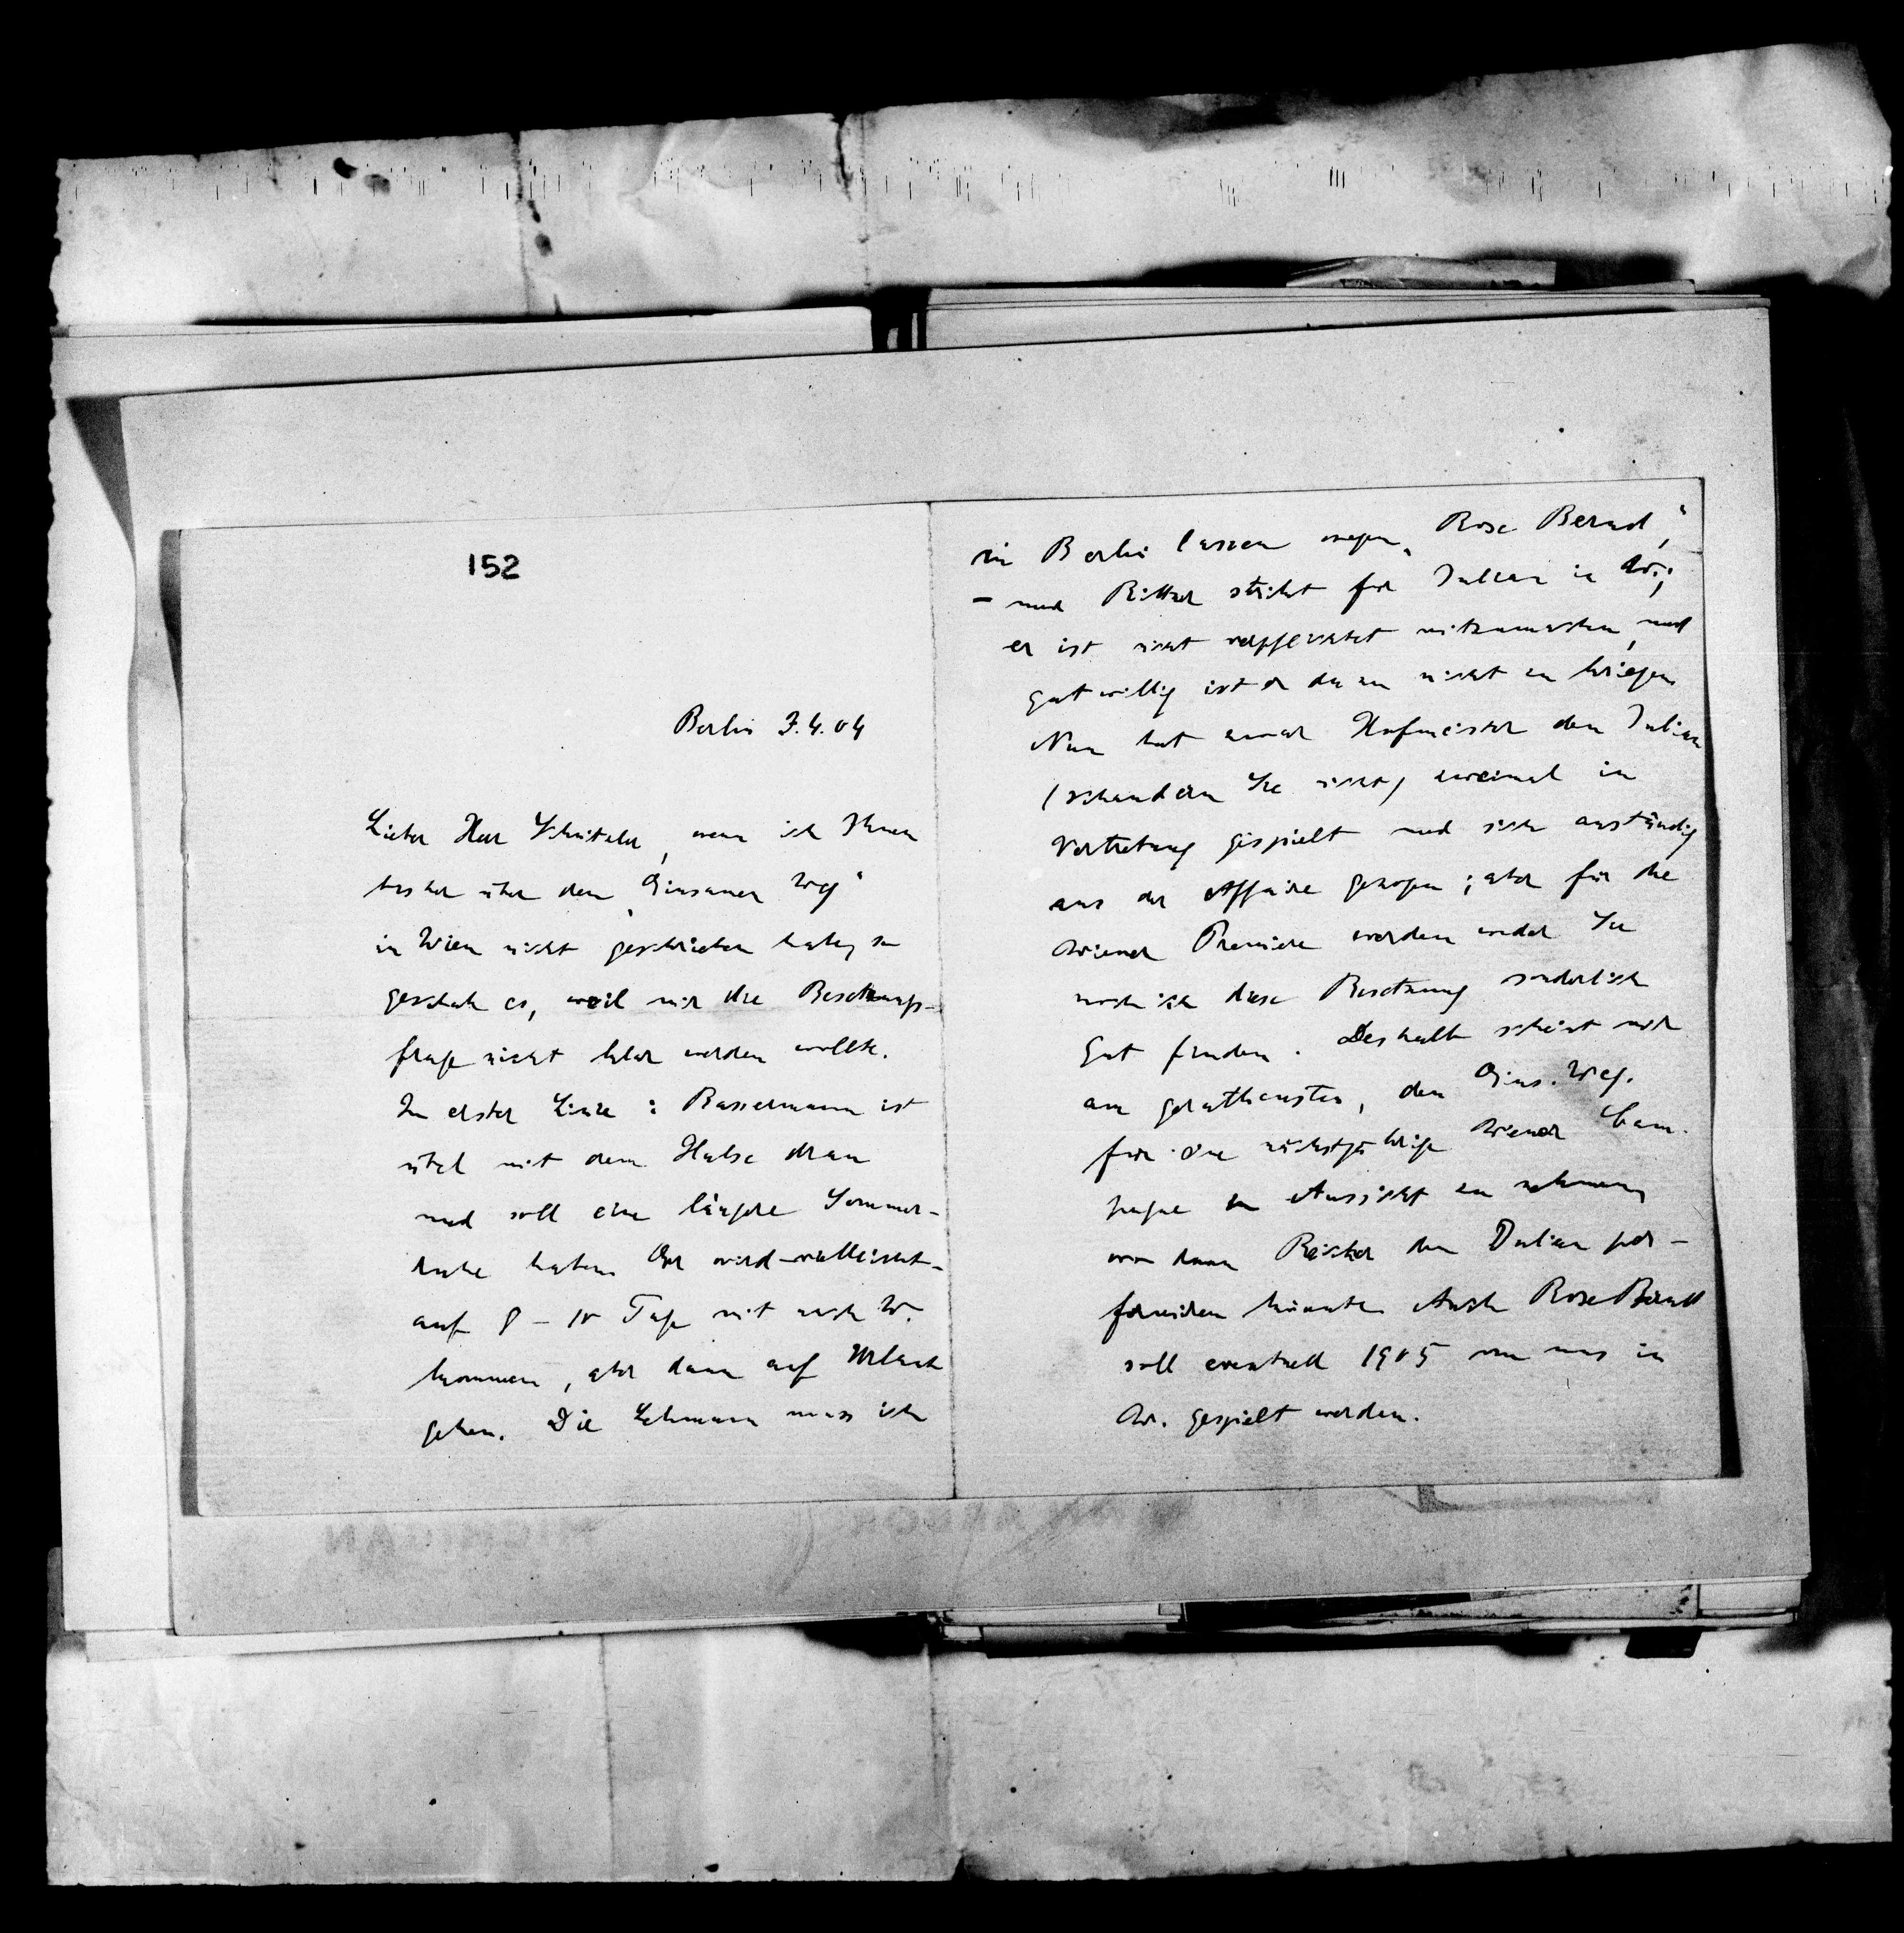 152
Berlin 7.4.04
Lieber Herr Schnitzler, wenn ich Ihnen
bisher über den „Einsamen Weg“
in Wien nicht geschrieben habe, so
geschah es, weil mir die Besetzungs-
frage nicht klar werden wollte.
In erster Linie: Bassermann ist
übel mit dem Halse dran
und soll eine längere Sommer-
ruhe haben. Er wird – vielleicht –
auf 8 – 10 Tage mit nach W.
kommen, aber dann auf Urlaub
gehen. Die Lehmann muss ich
in Berlin lassen wegen „Rose Bernd“,
– und Rittner streikt für Julian in W.;
er ist nicht verpflichtet mitzumachen, und
gutwillig ist er dazu nicht zu kriegen.
Nun hat zwar Hofmeister den Julian
(schaudern Sie nicht) zweimal in
Vertretung gespielt und sich anständig
aus der Affaire gezogen; aber für die
Wiener Premiere werden weder Sie
noch ich diese Besetzung sonderlich
gut finden. Deshalb scheint mir
am gerathensten, den Eins. Weg.
für die nächstjährige Wiener Cam-
pagne in Aussicht zu nehmen,
wo dann Reicher den Julian per-
formiren könnte. Auch Rose Bernd
soll eventuell 1905 von uns in
W. gespielt werden.
MICHIGAN
ANN ARBOR